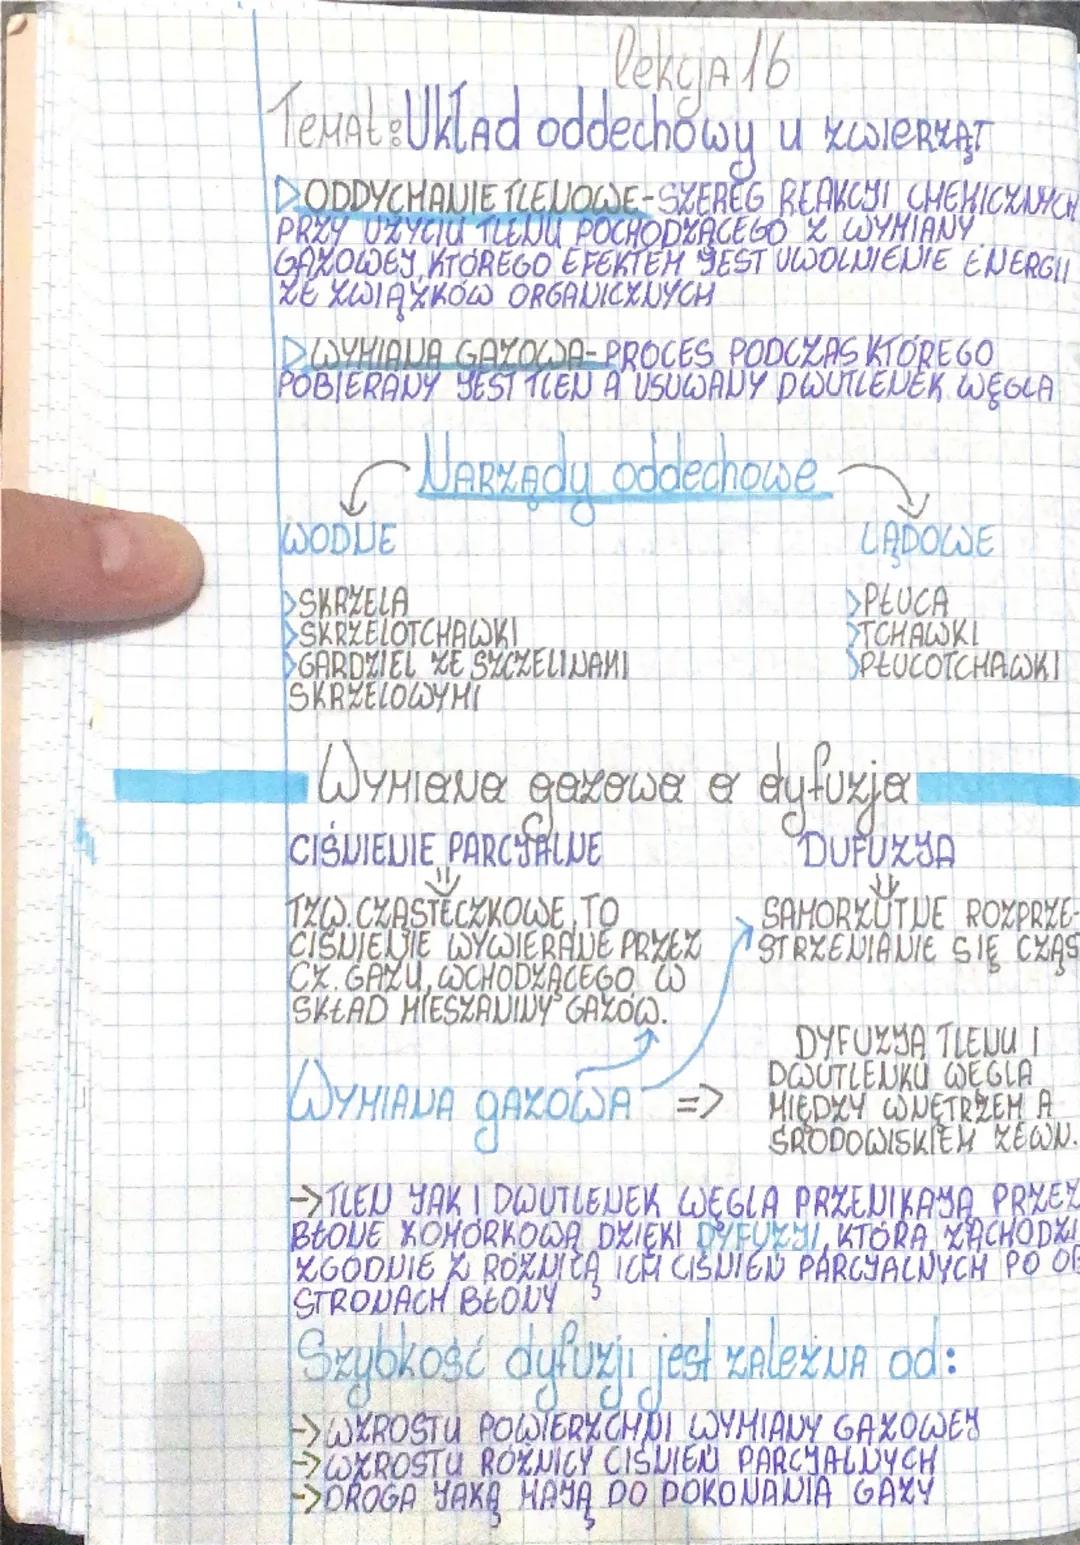 lekcja 16
Temat: Układ oddechowy u zwierząt
ODDYCHANIE TLENOWE - SZEREG REAKCJI CHEMICZNYCH
PRZY UŻYCIU TLENU POCHODZĄCEGO Z WYMIANY
GAZOWEJ, KTÓREGO EFEKTEM JEST UWOLNIENIE ENERGII
ZE ZWIĄZKÓW ORGANICZNYCH
WYMIANA GAZOWA - PROCES PODCZAS KTÓREGO
POBIERANY JEST TLEN A USUWANY DWUTLENEK WĘGLA
Narządy oddechowe
WODNE LĄDOWE
>SKRZELA >PŁUCA
>SKRZELOTCHAWKI >TCHAWKI
>GARDZIEL ZE SZCZELINAMI >PŁUCOTCHAWKI
SKRZELOWYMI
Wymiana gazowa a dyfuzja
CIŚNIENIE PARCJALNE DUFUZJA
TZW. CZĄSTECZKOWE, TO SAMORZUTNE ROZPRZE-
CIŚNIENIE WYWIERANE PRZEZ STRZENIANIE SIĘ CZĄS
CZ. GAZU, WCHODZĄCEGO W
SKŁAD MIESZANINY GAZÓW.
DYFUZJA TLENU I
DWUTLENKU WĘGLA
Wymiana gazowa => MIĘDZY WNĘTRZEM A
ŚRODOWISKIEM ZEWN.
->TLEN JAK I DWUTLENEK WĘGLA PRZENIKAJĄ PRZEZ
BŁONE KOMÓRKOWĄ DZIĘKI DYFUZJI, KTÓRA ZACHODZI
ZGODNIE Z RÓŻNICĄ ICH CIŚNIEŃ PARCJALNYCH PO OB
STRONACH BŁONY
Szybkość dyfuzji jest zależna od:
->WZROSTU POWIERZCHNI WYMIANY GAZOWEJ
->WZROSTU RÓŻNICY CIŚNIEŃ PARCJALNYCH
->DROGA JAKĄ MAJĄ DO POKONANIA GAZY